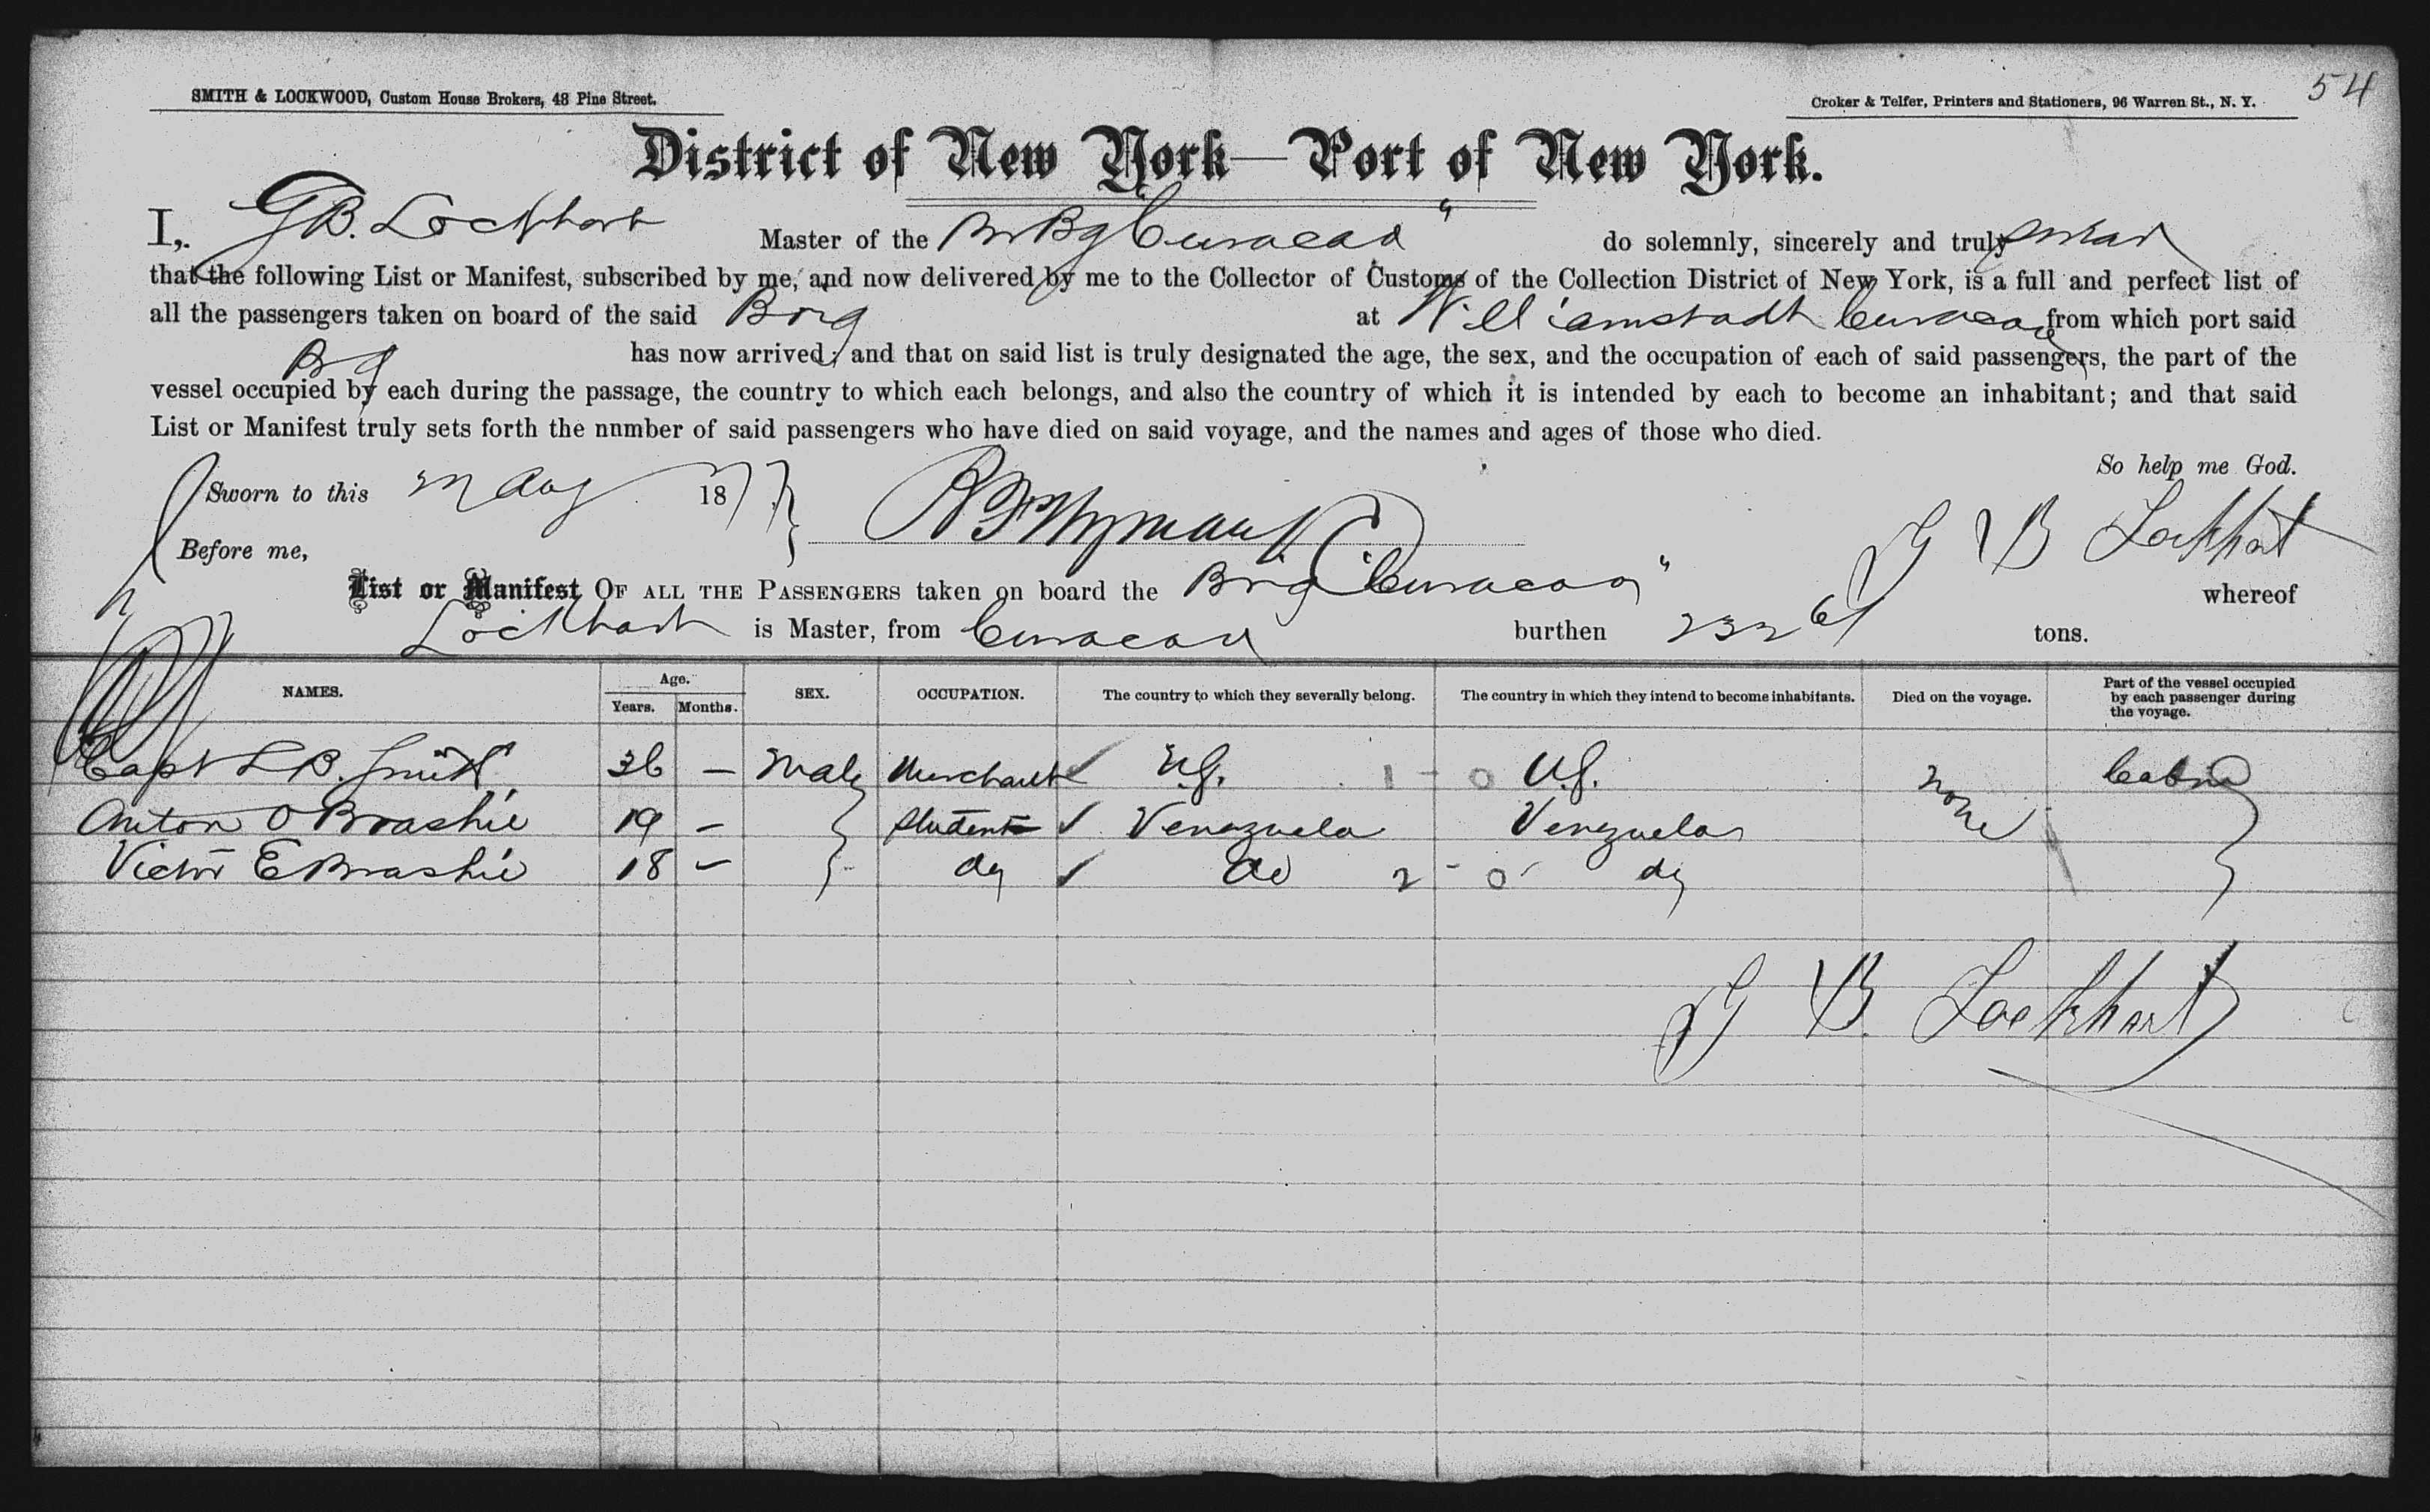 54
SMITH & LOCKWOOD, Custom House Brokers, 48 Pine Street.
Croker & Telfer, Printers and Stationers, 96 Warren St., N. Y.
District of New York—Port of New York.
I, GB. Lockhart Master of the Br Bg "Curacoa" do solemnly, sincerely and truly swear
that the following List or Manifest, subscribed by me, and now delivered by me to the Collector of Customs of the Collection District of New York, is a full and perfect list of
all the passengers taken on board of the said Brig at Williamstadt Curacoa from which port said
Bg has now arrived; and that on said list is truly designated the age, the sex, and the occupation of each of said passengers, the part of the
vessel occupied by each during the passage, the country to which each belongs, and also the country of which it is intended by each to become an inhabitant; and that said
List or Manifest truly sets forth the nnmber of said passengers who have died on said voyage, and the names and ages of those who died.
So help me God.
Sworn to this May 1877
Before me, G B Lockhart
List or Manifest OF ALL THE PASSENGERS taken on board the Brig "Curacoa" whereof
Lockhart is Master, from Curacoa burthen 232 61 tons.
NAMES. Age. Years. Months. SEX. OCCUPATION. The country to which they severally belong. The country in which they intend to become inhabitants. Died on the voyage. Part of the vessel occupied by each passenger during the voyage.
Capt L B. Smith 36 – Male Merchant ✓ U.S. 1 - 0 U.S. none Cabin
Anton O Brashie 19 – Student ✓ Venezuela Venezuela
Victor E Brashie 18 – do ✓ do 2 - 0 do
G B. Lockhart